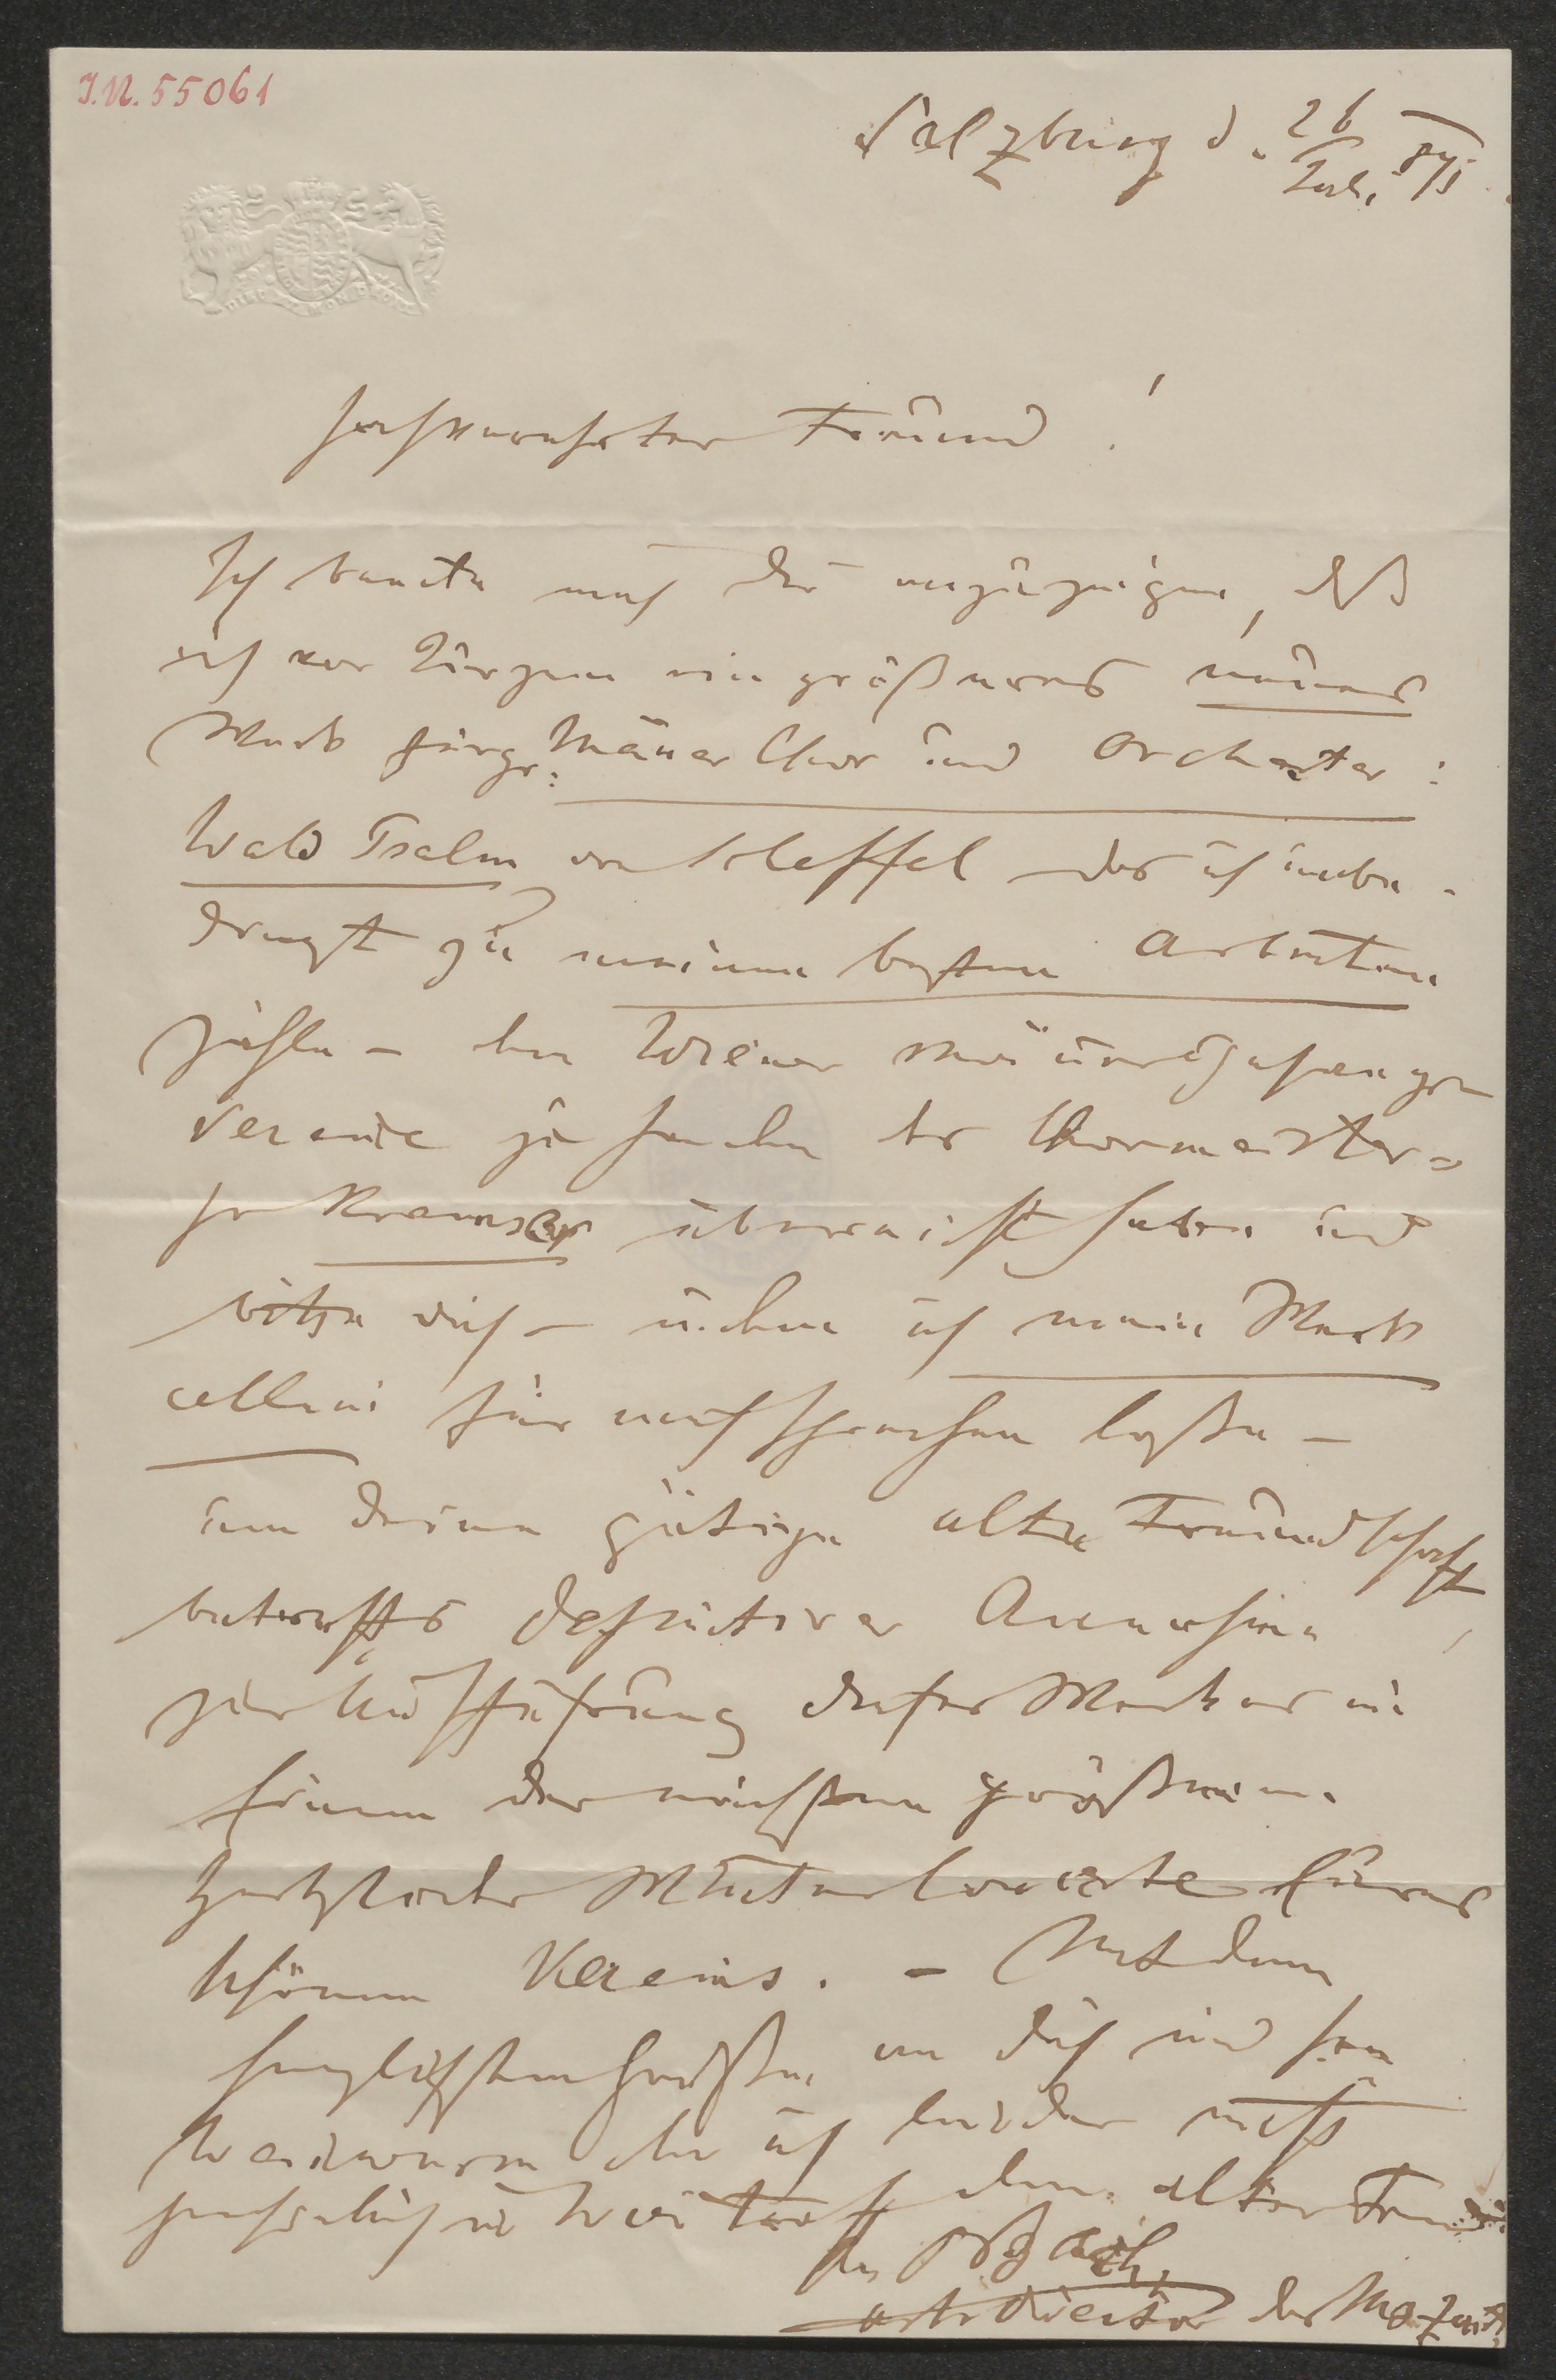 I.N. 55061
Salzburg d. 26 Juli
Hochverehrter Freund!
Ich beeile mich Dir anzuzeigen, dß
ich vor Kurzem ein größeres neues
Werk für gr: Männer Chor und Orchester:
Wald Psalm von Scheffel das ich unbe-
dingt zu meinen besten Arbeiten
zähle – dem Wiener Männergesangs
Vereine zu Handen des Chormeisters
H Kremser überreicht habe und
bitte dich – indem ich mein Werk
allein für mich sprechen laße –
um Deine gütige alte Freundschaft
betreffs definitiver Annahme
zur Aufführung dieses Werkes in
einem der nächsten größeren
Conzerte Eures
schönen Vereins. – Mit den
herzlichsten Grüßen an Dich und Herrn
Weinwurm den ich leider nicht
dein alter Freund
Dr Bach
Director des Mozart